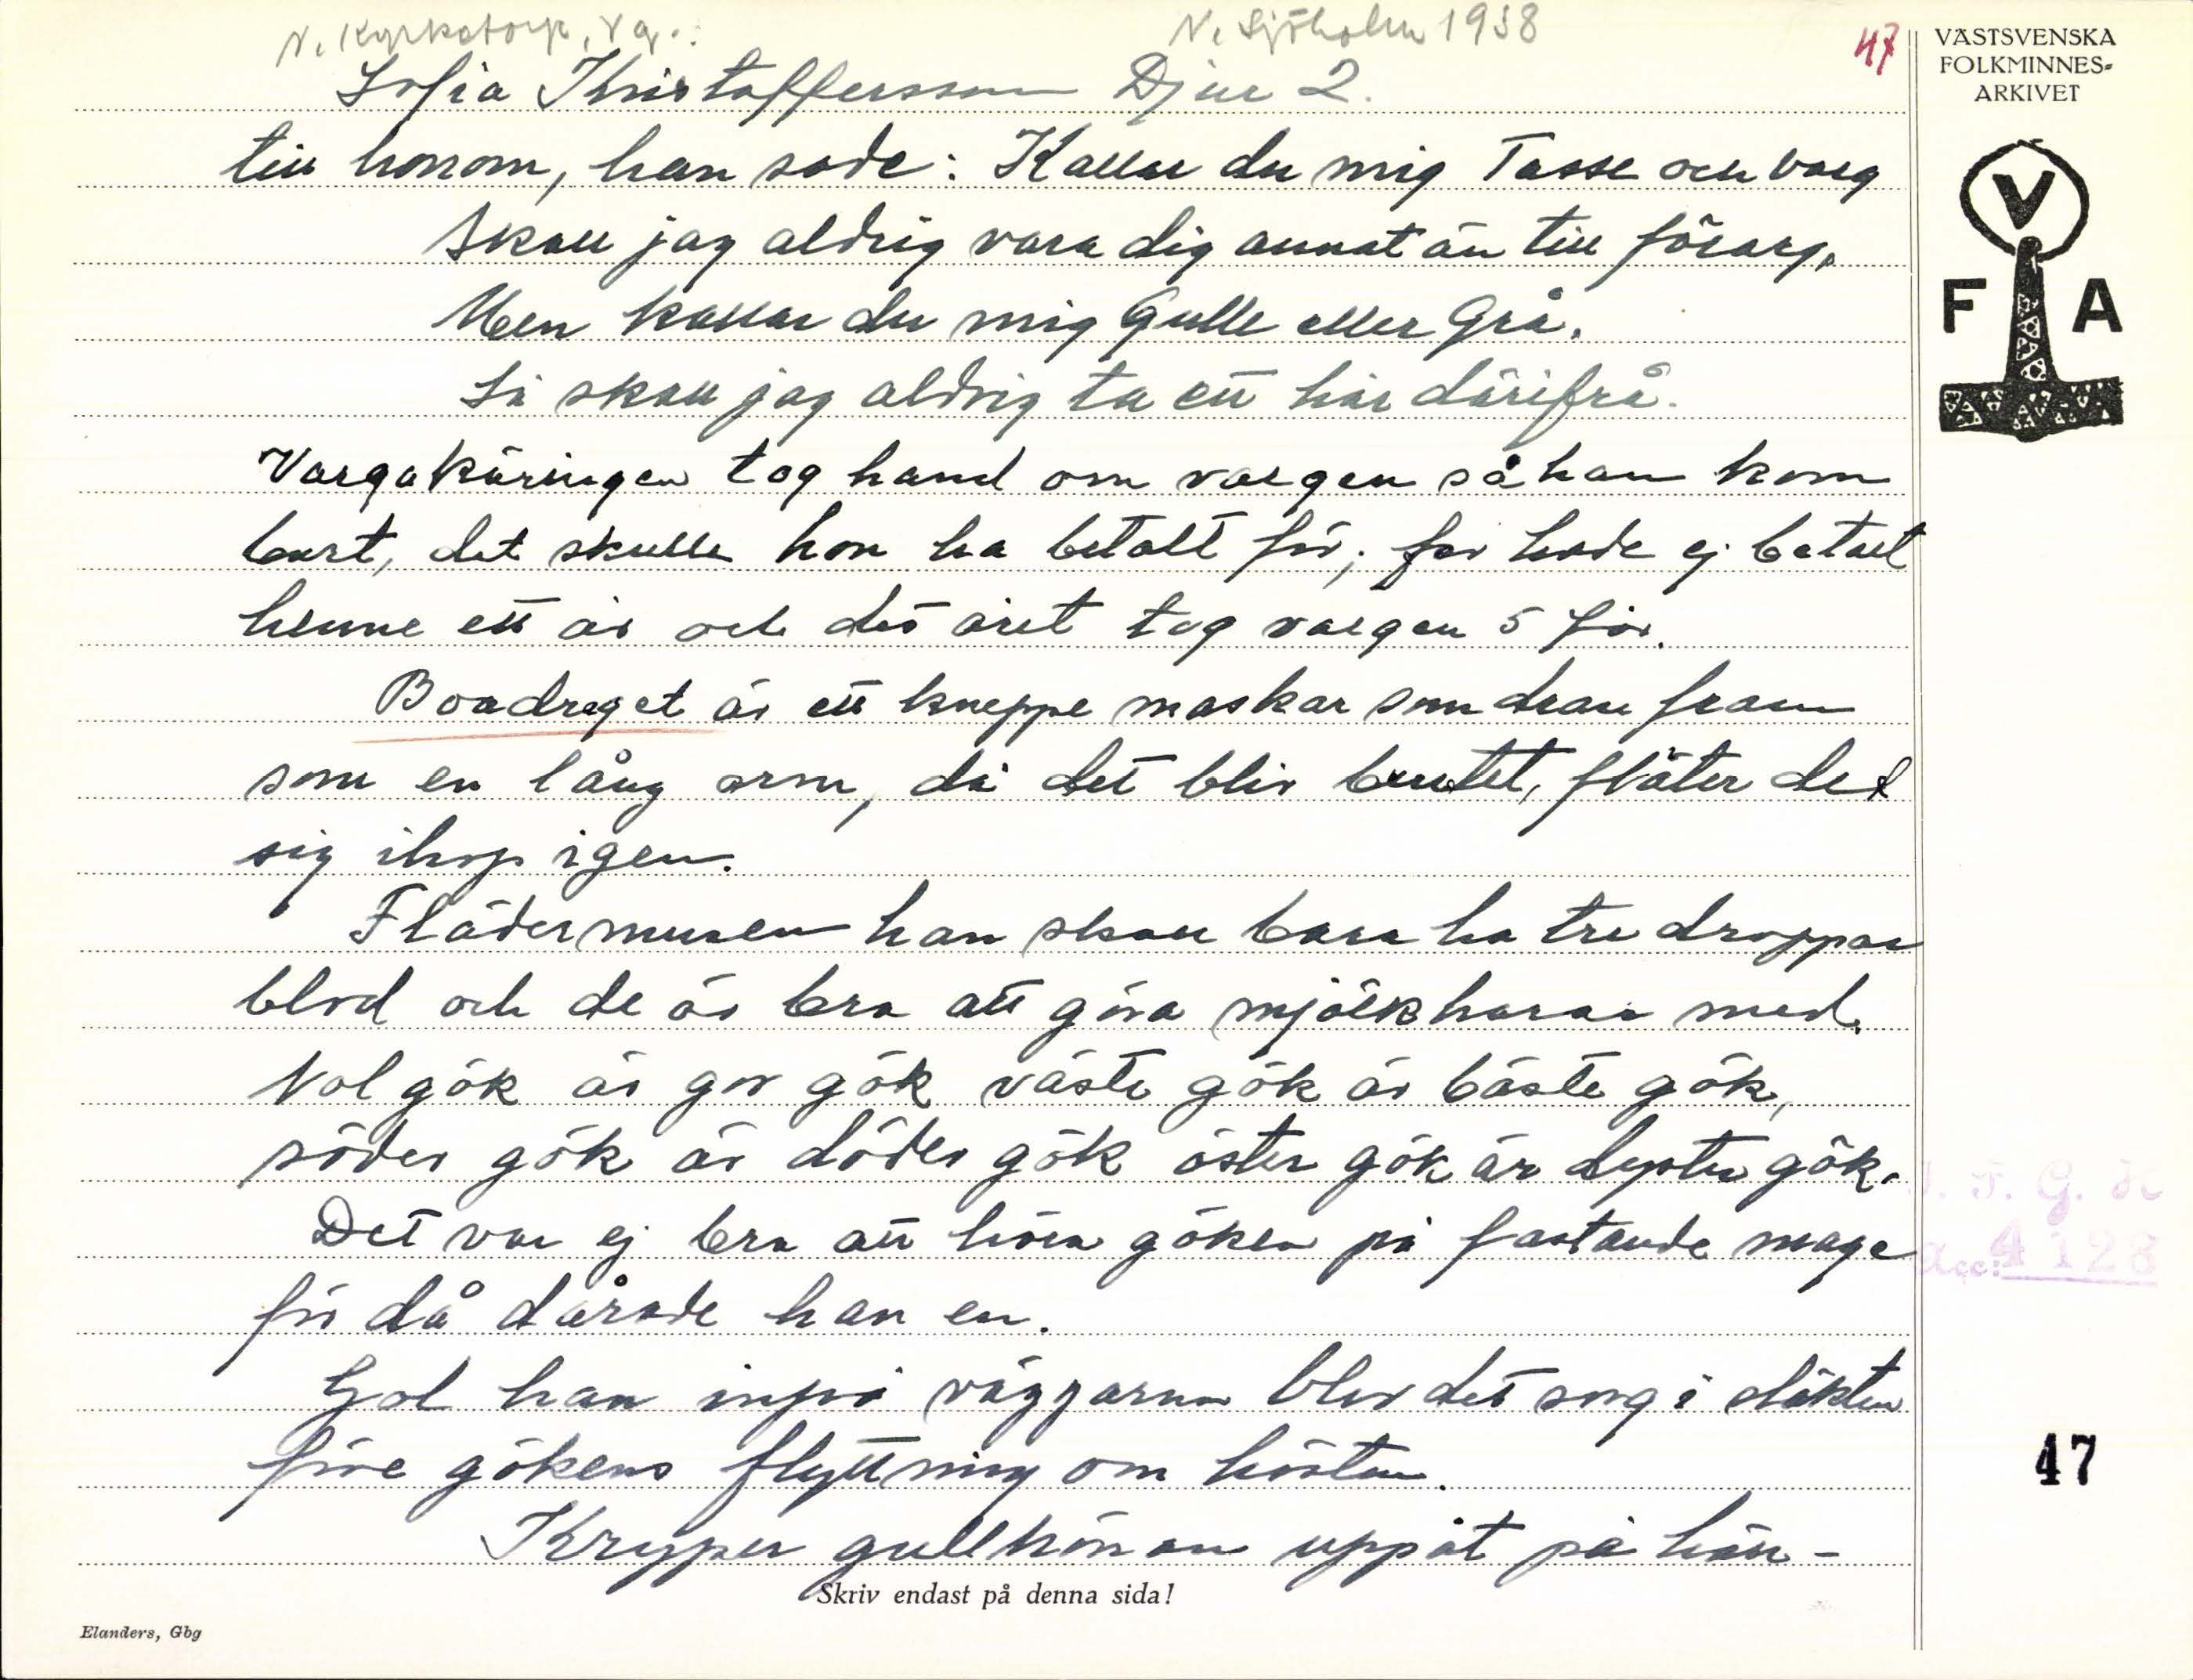 N. Kyrketorp, Vg.:
N. Sjöholm 1938
47
Sofia Khristoffersson Djur 2.
till honom, han sade: Kallar du mig Tasse och varg
skall jag aldrig vara dig annat än till förarg.
Men kallar du mig Gulle eller Grå.
Så skall jag aldrig ta ett hår därifrå.
Vargakäringen tog hand om vargen så han kom
bort, det skulle hon ha betalt för, far hade ej betalt
henne ett år och det året tog vargen 5 får.
Boadraget är ett kneppe maskar som drar fram
som en lång orm, då det blir brutet, fläter det
sig ihop igen.
Flädermusen han skall bara ha tre droppar
blod och de är bra att göra mjölkharar med.
Nol gök är gor gök väste gök är bäste gök,
söder gök är döder gök öster gök är dyster gök.
Det var ej bra att höra göken på fastande mage
för då dårade han en.
Gol han inpå väggarna blev det sorg i släkten
före gökens flyttning om hösten.
Kryper gullhönan uppåt på hän-
Skriv endast på denna sida!
Elanders, Gbg
VÄSTSVENSKA
FOLKMINNES-
ARKIVET
V
F A
I. F. G. H
Acc: 4128
47